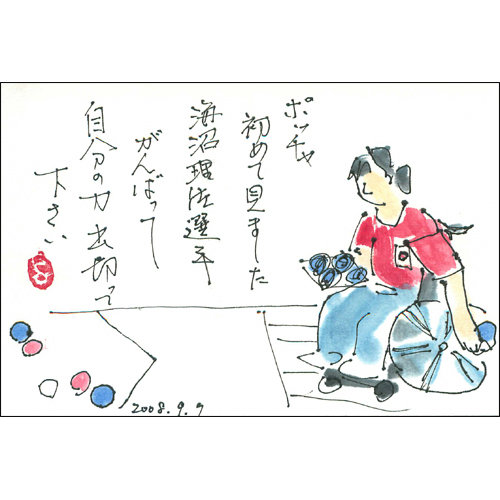 ボッチャ
初めて見ました
海沼理佐選手
がんばって
自分の力出切って
下さい
2008.9.7